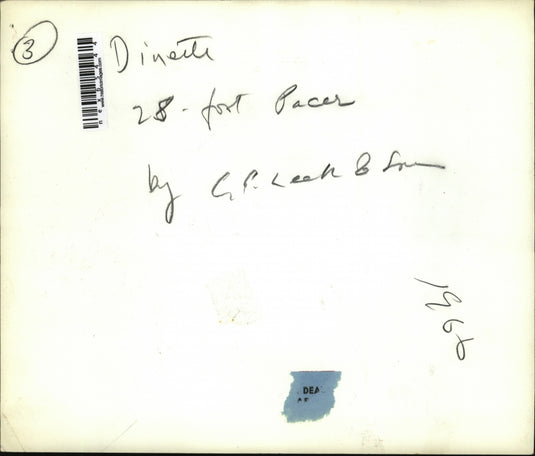 3
Dinette
28-foot Pacer
by C.P. Leek & Son
1962
DEA